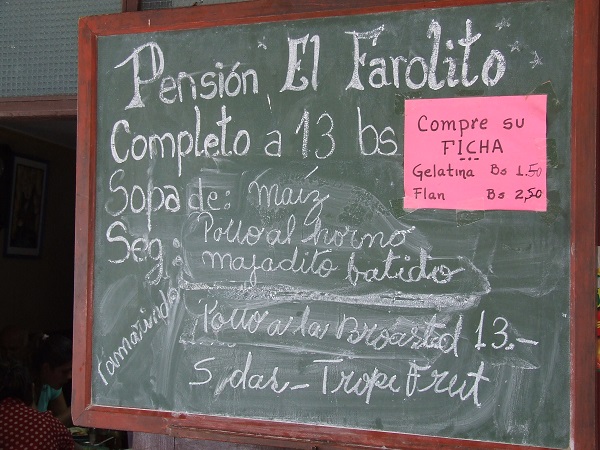 Pensión "El Farolito"
Completo a 13 bs
Sopa de: maíz
Seg: Pollo al horno
majadito batido
Pollo a la Broasted 13.-
Tamarindo
S das - Tropi Frut
Compre su
FICHA
Gelatina Bs 1.50
Flan Bs 2,50